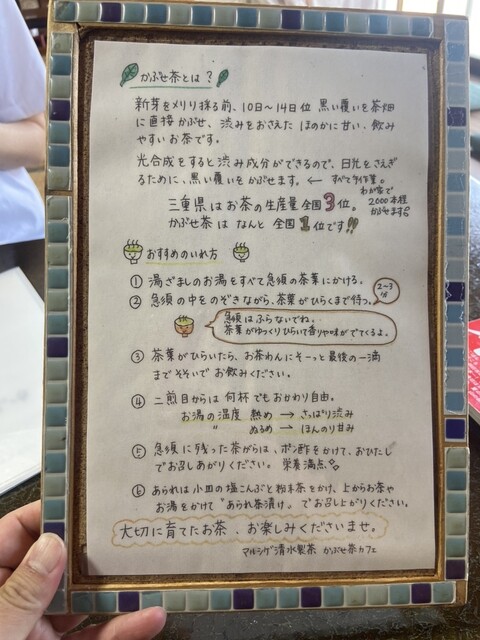 かぶせ茶とは?
新芽をメリリ採る前、10日〜14日位 黒い覆いを茶畑
に直接かぶせ、渋みをおさえた ほのかに甘い、飲み
やすいお茶です。
光合成をすると渋み成分ができるので、日光をさえぎ
るために、黒い覆いをかぶせます。 ← すべて手作業。
わが家で
2000本程
かぶせます
三重県はお茶の生産量 全国3位。
かぶせ茶は なんと 全国1位です!!
おすすめのいれ方
① 湯ざましのお湯をすべて急須の茶葉にかける。
② 急須の中をのぞきながら、茶葉がひらくまで待つ。
2〜3分
急須はふらないでね。
茶葉がゆっくりひらいて香りや味がでてくるよ。
③ 茶葉がひらいたら、お茶わんにそーっと最後の一滴
までそそいでお飲みください。
④ 二煎目からは何杯でもおかわり自由。
お湯の温度 熱め → さっぱり渋み
〃 ぬるめ → ほんのり甘み
⑤ 急須に残った茶がらは、ポン酢をかけて、おひたし
でお召しあがりください。 栄養満点
⑥ あられは小皿の塩こんぶと粉末茶をかけ、上からお茶や
お湯をかけて"あられ茶漬け"でお召し上がりください。
大切に育てたお茶、お楽しみくださいませ。
マルシゲ清水製茶 かぶせ茶カフェ